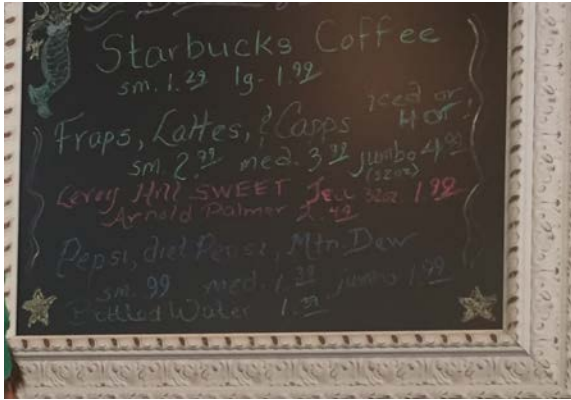 Starbucks Coffee
sm. 1.29 lg. 1.99
iced or
Fraps, Lattes, & Capps Hot!
sm. 2.99 med. 3.99 jumbo 4.99
(32oz)
Leroy Hill SWEET Tea 32oz. 1.99
Arnold Palmer 2.49
Pepsi, diet Pepsi, Mtn Dew
sm. 99 med. 1.39 jumbo 1.99
Bottled Water 1.39